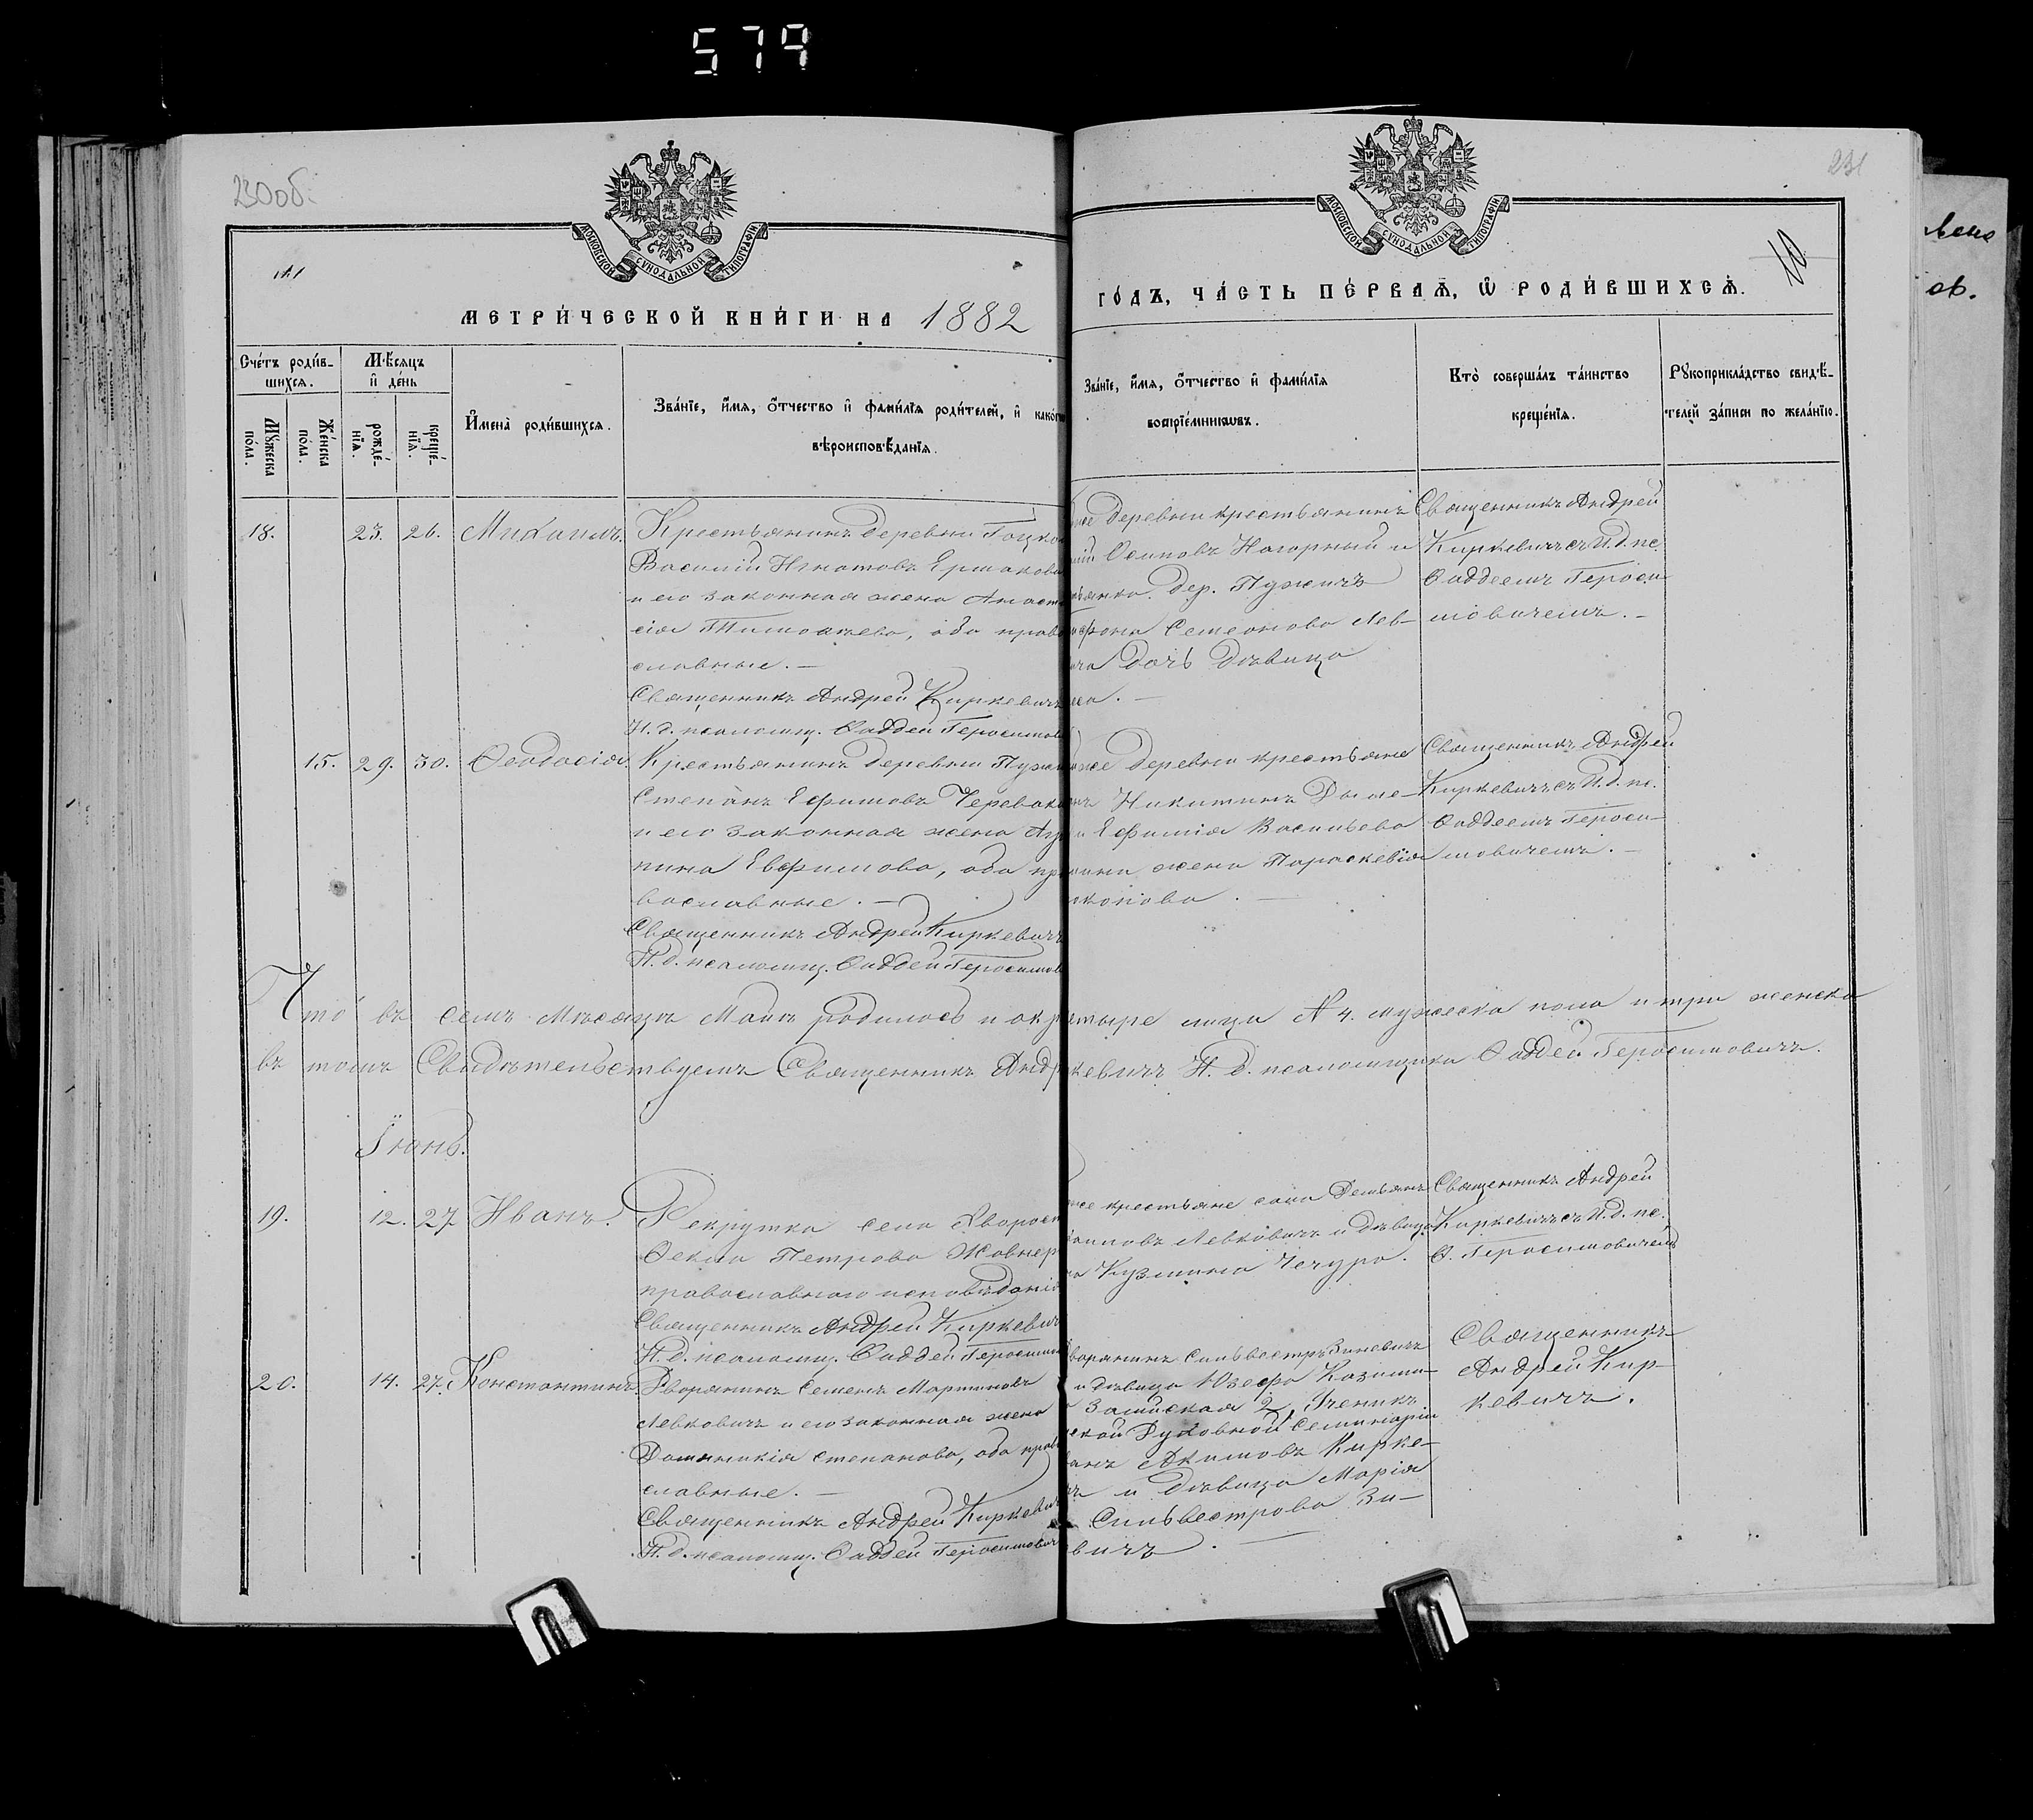 579
230об.
231
10
МОСКОВСКОЙ СѴНОДАЛЬНОЙ ТИПОГРАФІИ
МОСКОВСКОЙ СѴНОДАЛЬНОЙ ТИПОГРАФІИ
МЕТРИ́ЧЕСКОЙ КНИ́ГИ НА 1882
ГО́ДЪ, ЧА́СТЬ ПЕ́РВАѦ, Ѡ҆ РОДИ́ВШИХСѦ.
Счетъ роди́в-
шихся.
Мѣ́сяцъ
и҆ де́нь
Мꙋ́жеска
по́ла.
Же́нска
по́ла.
рожде́-
нїѧ.
креще́-
нїѧ.
И҆мена̀ роди́вшихся.
Зва́нїе, и҆́мя, ѻ҆́тчество и҆ фами́лїѧ роди́телей, и҆ како́гѡ
вѣроисповѣ́данїѧ.
Зва́нїе, и҆́мя, ѻ҆́тчество и҆ фами́лїѧ
воспрїе́мникѡвъ.
Кто̀ соверша́лъ та́инство
креще́нїѧ.
Рꙋкоприкла́дство свидѣ́-
телей за́писи по жела́нїю.
18. 23. 26. Михаилъ.
Крестьянинъ деревни
Василій Игнатовъ Ермаков
и его законная жена Анаст
сія Тимоѳеева, оба право
славные. —
Священникъ Андрей Киркевичъ
И. д. псаломщ. Ѳаддей Геросимов
же деревни крестьянинъ
Осиповъ Нагорный и
дер. Пужичъ
Семенова Лев-
дочь дѣвица
Священникъ Андрей
Киркевичъ съ И. д. пс.
Ѳаддеемъ Героси-
мовичемъ. —
15. 29. 30. Ѳеодосія.
Крестьянинъ деревни Пуж
Степанъ Ефимовъ Черевак
и его законная жена Агр
пина Евфимова, оба пра
вославные. —
Священникъ Андрей Киркевичъ
И. д. псаломщ. Ѳаддей Геросимов
же деревни крестьяне
Никитинъ
и Ефимія Васильева
жена Параскевія
Священникъ Андрей
Киркевичъ съ И. д. пс.
Ѳаддеемъ Героси-
мовичемъ. —
Что въ семъ Мѣсяцѣ Маиѣ родилось и окр тыре лица № 4. мужеска пола и три женска
въ томъ Свидѣтельствуемъ Священникъ Андр кевичъ И. д. псаломщика Ѳаддей Геросимовичъ.
Іюнь.
19. 12. 27 Иванъ.
Рекрутка села Хворост
Ѳекла Петрова Жовнер
православнаго исповѣданія
Священникъ Андрей Киркевич
И. д. псаломщ. Ѳаддей Геросимов
же крестьяне села Демьянъ
Левковичъ и дѣвица
Кузмина Чечура.
Священникъ Андрей
Киркевичъ съ И. д. пс.
Ѳ. Геросимовичемъ
20. 14. 27. Константинъ
Дворянинъ Семенъ Мартиновъ
Левковичъ и его законная жена
Доминикія Степанова, оба прав
славные. —
Священникъ Андрей Киркевич
И. д. псаломщ. Ѳаддей Геросимович
воряненъ Сильвестръ Зиневичъ
и дѣвица Юзефа Казими-
2, Ученикъ
ской Духовной Семинаріи
Акимовъ Кирке-
и дѣвица Марія
Сильвестрова Зи-
вичъ. —
Священникъ
Андрей Кир-
кевичъ.
ов.